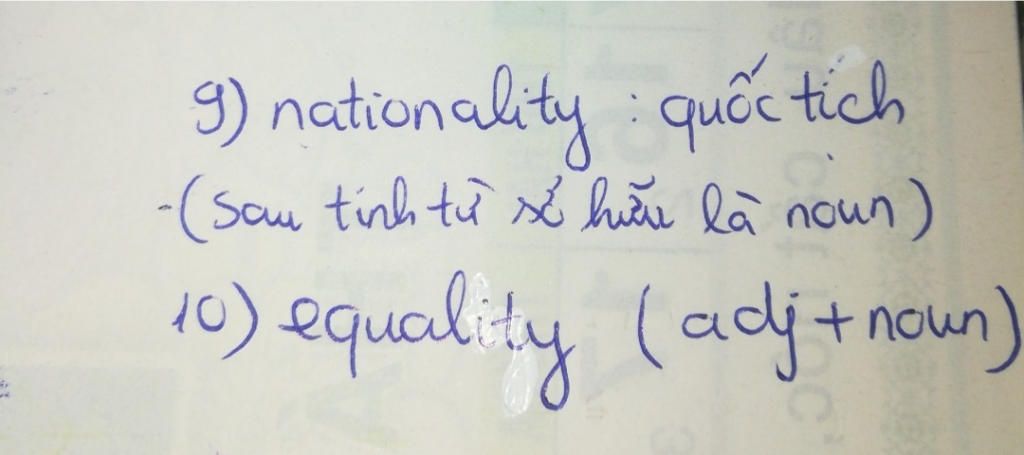 9) nationality : quốc tịch
-(sau tính từ sở hữu là noun)
10) equality (adj + noun)